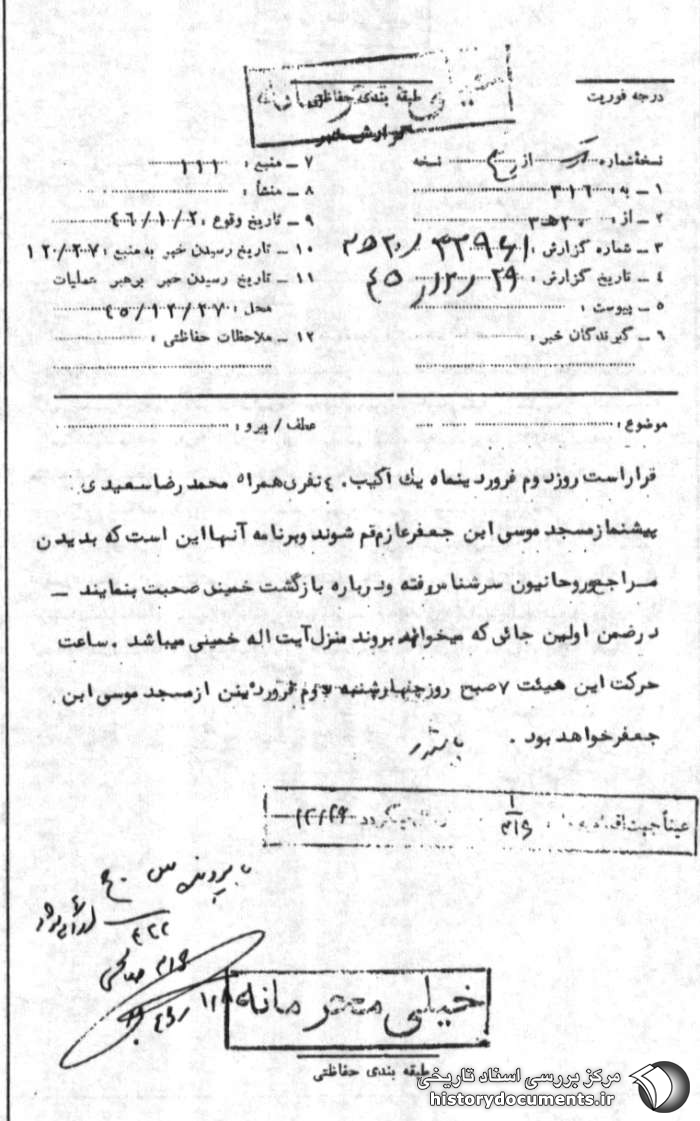 طبقه بندی حفاظتی
درجه فوریت
گزارش خبر
نسخه شماره از نسخه
۱ ــ به : ۳۱۶
۲ ــ از : ۲۰ه۳
۳ ــ شماره گزارش :
۴ ــ تاریخ گزارش : ۲۹ /۱۲/ ۴۵
۵ ــ پیوست :
۶ ــ گیرندگان خبر :
۷ ــ منبع : ۱۱۱
۸ ــ منشأ :
۹ ــ تاریخ وقوع : ۴۶/۱/۲
۱۰ ــ تاریخ رسیدن خبر به منبع : ۱۲/۲۷
۱۱ ــ تاریخ رسیدن خبر برهبر عملیات
محل : ۴۵/۱۲/۲۷
۱۲ ــ ملاحظات حفاظتی :
موضوع :
عطف / پیرو :
قراراست روزدوم فروردینماه یك اکیپ ۴۰ نفری همراه محمد رضا سعیدی
پیشنماز مسجد موسی ابن جعفر عازم قم شوند و برنامه آنها این است که بدیدن
مراجع و روحانیون سرشناس رفته ودرباره بازگشت خمینی صحبت بنمایند ــ
درضمن اولین جائی که میخواهند بروند منزل آیت اله خمینی میباشد . ساعت
حرکت این هیئت ۷ صبح روز چهارشنبه دوم فروردین از مسجد موسی ابن
جعفر خواهد بود .
عیناً جهت
۳۱۶
۱۲/۲۹
خیلی محرمانه
طبقه بندی حفاظتی
مرکز بررسی اسناد تاریخی
historydocuments.ir